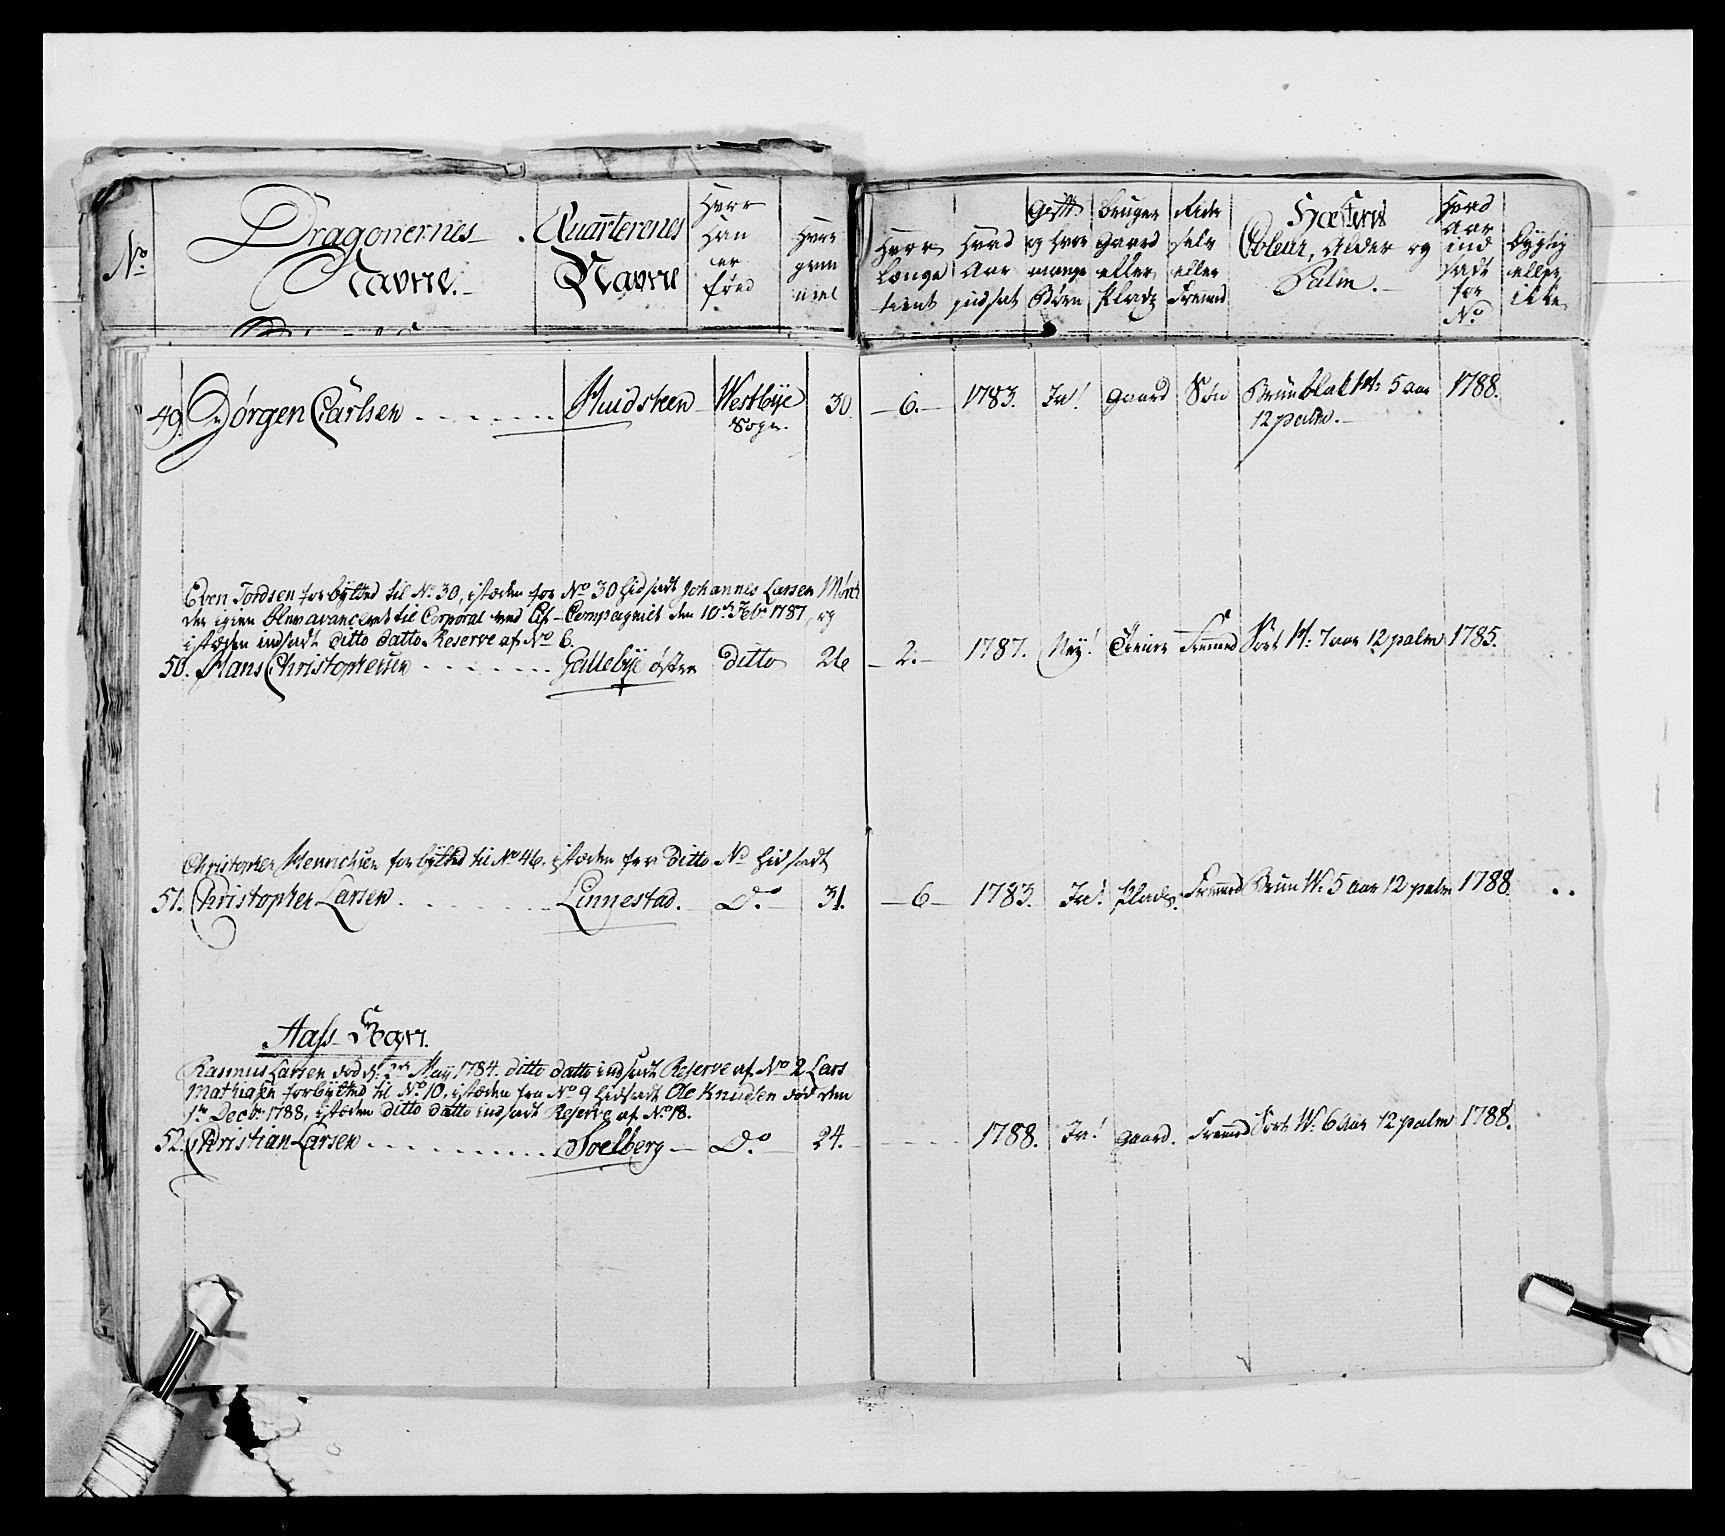 No. Dragonernes Navne.
Quarterenes Navne
Hvor han er fød
Hvor gammel
Hvor Længe tient
Hvad Aar indsat
Gift og hvor mange Børn
Bruger gaard eller Pladz
Eide selv eller Fremmed
Hæstens Coleur, Alder og Palm.
Hvad Aar ind sadt for No
Dygtig eller ikke
49. Jørgen Carlsen Huidsteen Westbye 30. 6. 1783. Ja! gaard Søn Brunblak H: 5 aar 1788.
Sogn. 12 palm.
Even Tordsen forbytted til No. 30, isteden for No 30 hidsadt Johannes Larsen Mørch
der igien blev avanceret til Corporal ved Lif-Compagniet den 10de Febr. 1787, og
isteden indsadt ditto datto Reserve af No 6.
50. Hans Christophersen Gallebye østre ditto 26 2. 1787. Ney! Tiener Fremmed Sort H: 7 aar 12 palm 1785.
Christopher Henrichsen forbytted til No 46. isteden fra Ditto No hidsadt
51. Christopher Larsen Linnestad. Do. 31. 6 1783. Ja! Plads. Fremmed Brun W: 5 aar 12 palm 1788.
Aass Sogn.
Rasmus Larsen død d: May 1784. ditto datto indsadt Reserve af No 2 Lars
Mathiasen forbytted til No. 10, isteden fra No 9 hidsadt Ole Knudsen død den
1te Decbr. 1788, isteden ditto datto indsadt Reserve af No. 18.
52. Christian Larsen Soelberg Do. 24. 1788. Ja! gaard. Fremmed Sort W: 6 aar 12 palm 1788.